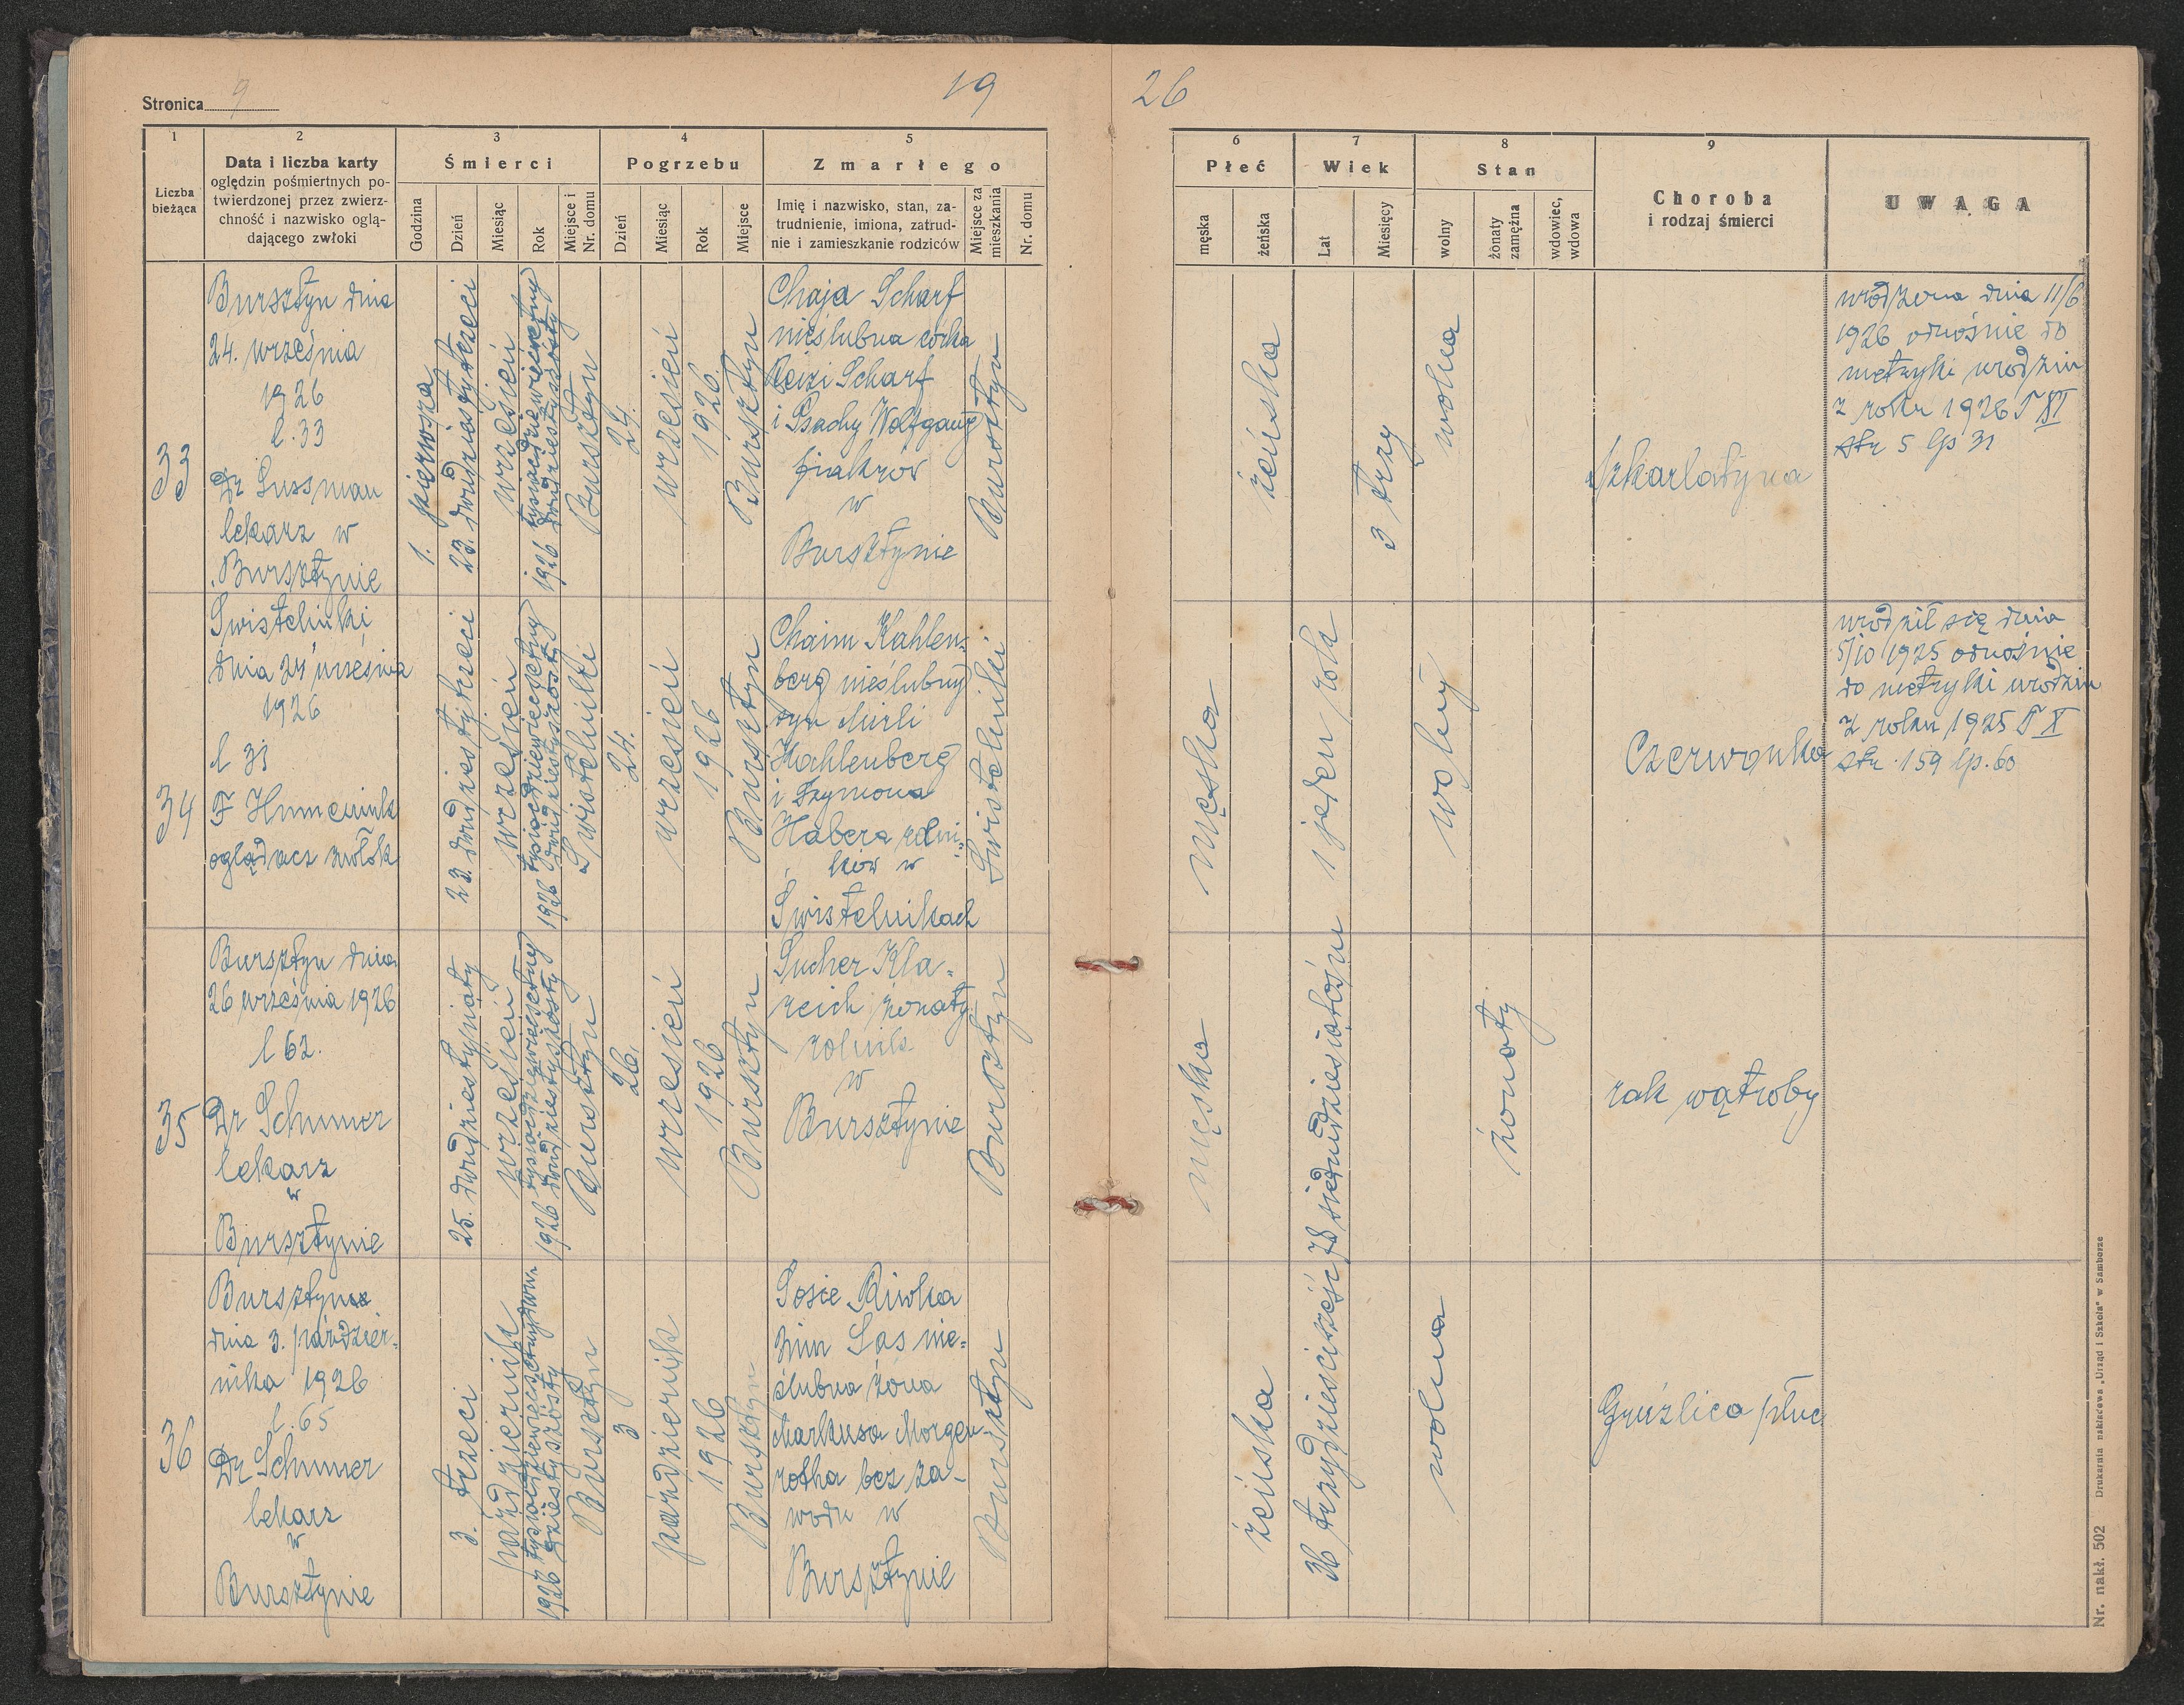 Stronica 9
19
26
1
2
3
4
5
6
7
8
9
Liczba
bieżąca
Data i liczba karty
oględzin pośmiertnych po-
twierdzonej przez zwierz-
chność i nazwisko oglą-
dającego zwłoki
Śmierci
Godzina
Dzień
Miesiąc
Rok
Miejsce i
Nr. domu
Pogrzebu
Dzień
Miesiąc
Rok
Miejsce
Zmarłego
Imię i nazwisko, stan, za-
trudnienie, imiona, zatrud-
nie i zamieszkanie rodziców
Miejsce za
mieszkania
Nr. domu
Płeć
męska
żeńska
Wiek
Lat
Miesięcy
Stan
wolny
żonaty
zamężna
wdowiec,
wdowa
Choroba
i rodzaj śmierci
UWAGA
33
Bursztyn dnia
24. września
1926
l. 33
Dr Sussman
lekarz w
Bursztynie
1. pierwsza
23. dwudziestytrzeci
wrzesień
1926 tysiącdziewięćsetny
dwudziestyszósty
Bursztyn
24.
wrzesień
1926.
Bursztyn
Chaja Scharf
nieślubna córka
Reizi Scharf
i Psachy Wolfgang
fiakrów
w
Bursztynie
Bursztyn
żeńska
3 trzy
wolna
Szkarlatyna
urodzona dnia 11/6
1926 odnośnie do
metryki urodzin
z roku 1926 T XI
str 5 lp 31
34
Świstelniki
dnia 24 września
1926
l 31
F Humeniuk
oglądacz zwłok
23. dwudziestytrzeci
wrzesień
1926 tysiącdziewięćsetny
dwudziestyszósty
Świstelniki
24.
wrzesień
1926
Bursztyn
Chaim Kahlen-
berg nieślubny
syn Mirli
Kahlenberg
i Szymona
Habera rolni-
ków w
Świstelnikach
Świstelniki
męska
1 jeden rok
wolny
Czerwonka
urodził się dnia
5/10 1925 odnośnie
do metryki urodzin
z roku 1925 T X
str. 159 lp. 60
35
Bursztyn dnia
26 września 1926
l 62.
Dr Schumer
lekarz
w
Bursztynie
25. dwudziestypiąty
wrzesień
1926 tysiącdziewięćsetny
dwudziestyszósty
Bursztyn
26.
wrzesień
1926
Bursztyn
Sucher Kla-
reich żonaty
rolnik
w
Bursztynie
Bursztyn
męska
78 siedmdziesiątośm
żonaty
rak wątroby
36
Bursztyn
dnia 3. paździer-
nika 1926
l. 65
Dr Schumer
lekarz
w
Bursztynie
3. trzeci
październik
1926 tysiącdziewięćsetnydwu-
dziestyszósty
Bursztyn
3
październik
1926
Bursztyn
Sosie Riwka
zwn Sas nie-
ślubna żona
Markusa Morgen-
rotha bez za-
wodu w
Bursztynie
Bursztyn
żeńska
36 trzydzieścisześć
wolna
Gruźlica płuc
Nr. nakł. 502 Drukarnia nakładowa „Urząd i Szkoła" w Samborze